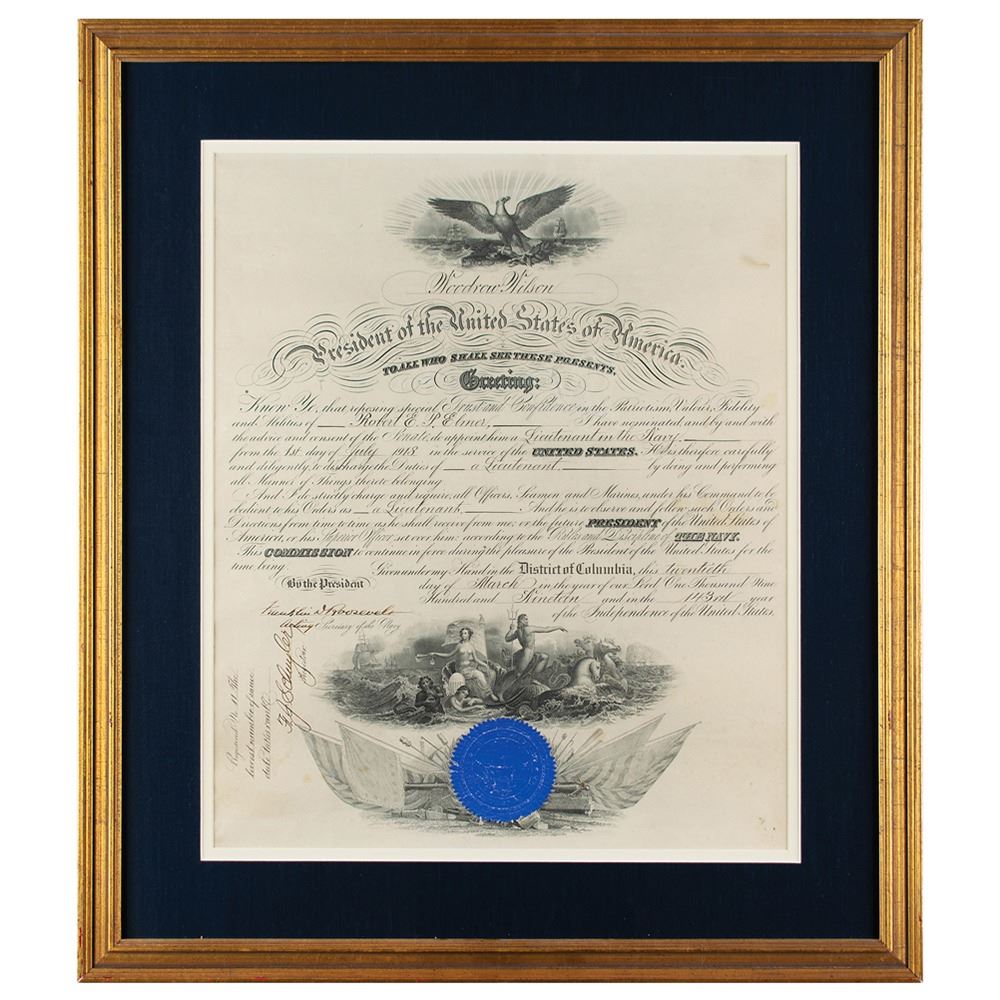 Woodrow Wilson
President of the United States of America.
TO ALL WHO SHALL SEE THESE PRESENTS,
Greeting:
Know Ye, that reposing special Trust and Confidence in the Patriotism, Valour, Fidelity
and Abilities of Robert E. P. Elmer, I have nominated and by and with
the advice and consent of the Senate, do appoint him a Lieutenant in the Navy
from the 1st day of July 1918 in the service of the UNITED STATES. He is therefore carefully
and diligently to discharge the Duties of a Lieutenant by doing and performing
all Manner of Things thereto belonging.
And I do strictly charge and require all Officers, Seamen and Marines, under his Command to be
obedient to his Orders as a Lieutenant And he is to observe and follow such Orders and
Directions from time to time as he shall receive from me, or the future PRESIDENT of the United States of
America, or his Superior Officer set over him, according to the Rules and Discipline of THE NAVY.
This COMMISSION to continue in force during the pleasure of the President of the United States for the
time being.
Given under my Hand in the District of Columbia, this twentieth
day of March in the year of our Lord One Thousand Nine
Hundred and Nineteen and in the 143rd year
of the Independence of the United States.
By the President
Franklin D Roosevelt
Acting Secretary of the Navy
Registered No.